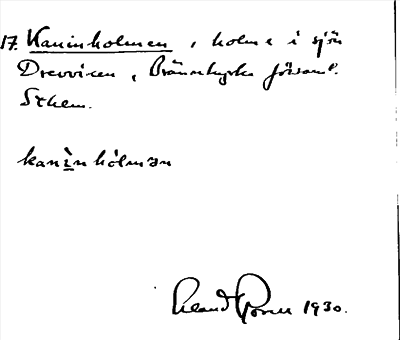 17. Kaninholmen, holme i sjön
Drevviken, Brännkyrka församl.
Sthlm.
kanìnhólmən
1930.